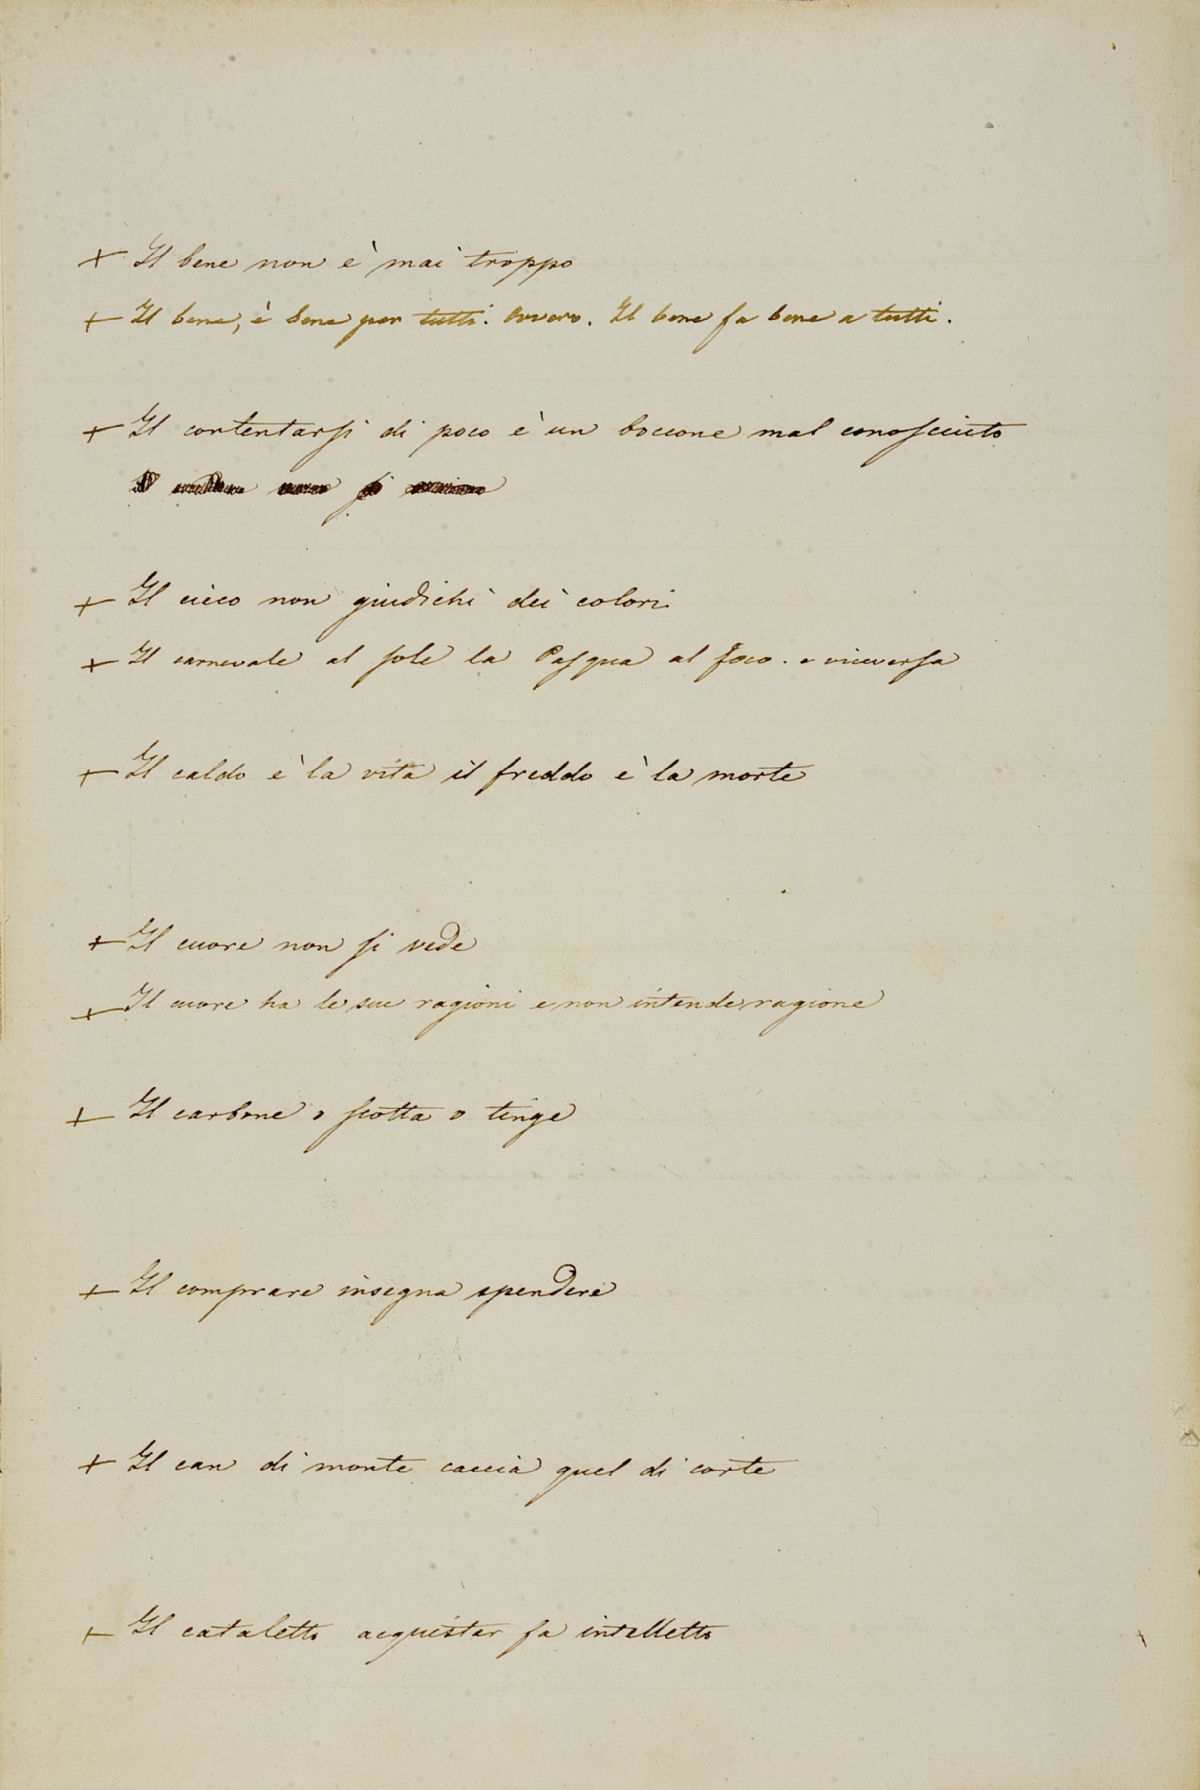 + Il bene non è mai troppo
+ Il bene, è bene per tutti. Ovvero. Il bene fa bene a tutti.
+ Il contentarsi di poco è un boccone mal conosciuto
si
+ Il cieco non giudichi dei colori
+ Il carnevale al sole la Pasqua al foco. e viceversa
+ Il caldo è la vita il freddo è la morte
+ Il cuore non si vede
+ Il cuore ha le sue ragioni e non intende ragione
+ Il carbone o scotta o tinge
+ Il comprare insegna spendere
+ Il can di monte caccia quel di corte
+ Il cataletto acquistar fa intelletto